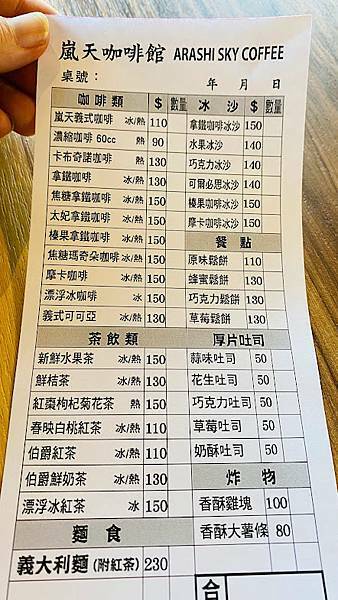 嵐天咖啡館 ARASHI SKY COFFEE
桌號： 年 月 日
咖啡類 $ 數量
嵐天義式咖啡 冰/熱 110
濃縮咖啡 60cc 熱 90
卡布奇諾咖啡 熱 130
拿鐵咖啡 冰/熱 130
焦糖拿鐵咖啡 冰/熱 150
太妃拿鐵咖啡 冰/熱 150
榛果拿鐵咖啡 冰/熱 150
焦糖瑪奇朵咖啡 冰/熱 150
摩卡咖啡 冰/熱 150
漂浮冰咖啡 冰 150
義式可可亞 冰/熱 130
茶飲類
新鮮水果茶 冰/熱 150
鮮桔茶 冰/熱 130
紅棗枸杞菊花茶 熱 150
春映白桃紅茶 冰/熱 110
伯爵紅茶 冰/熱 110
伯爵鮮奶茶 冰/熱 130
漂浮冰紅茶 冰 150
麵食
義大利麵 (附紅茶) 230
冰沙 $ 數量
拿鐵咖啡冰沙 150
水果冰沙 140
巧克力冰沙 140
可爾必思冰沙 140
榛果咖啡冰沙 150
摩卡咖啡冰沙 150
餐點
原味鬆餅 110
蜂蜜鬆餅 130
巧克力鬆餅 130
草莓鬆餅 130
厚片吐司
蒜味吐司 50
花生吐司 50
巧克力吐司 50
草莓吐司 50
奶酥吐司 50
炸物
香酥雞塊 100
香酥大薯條 80
合